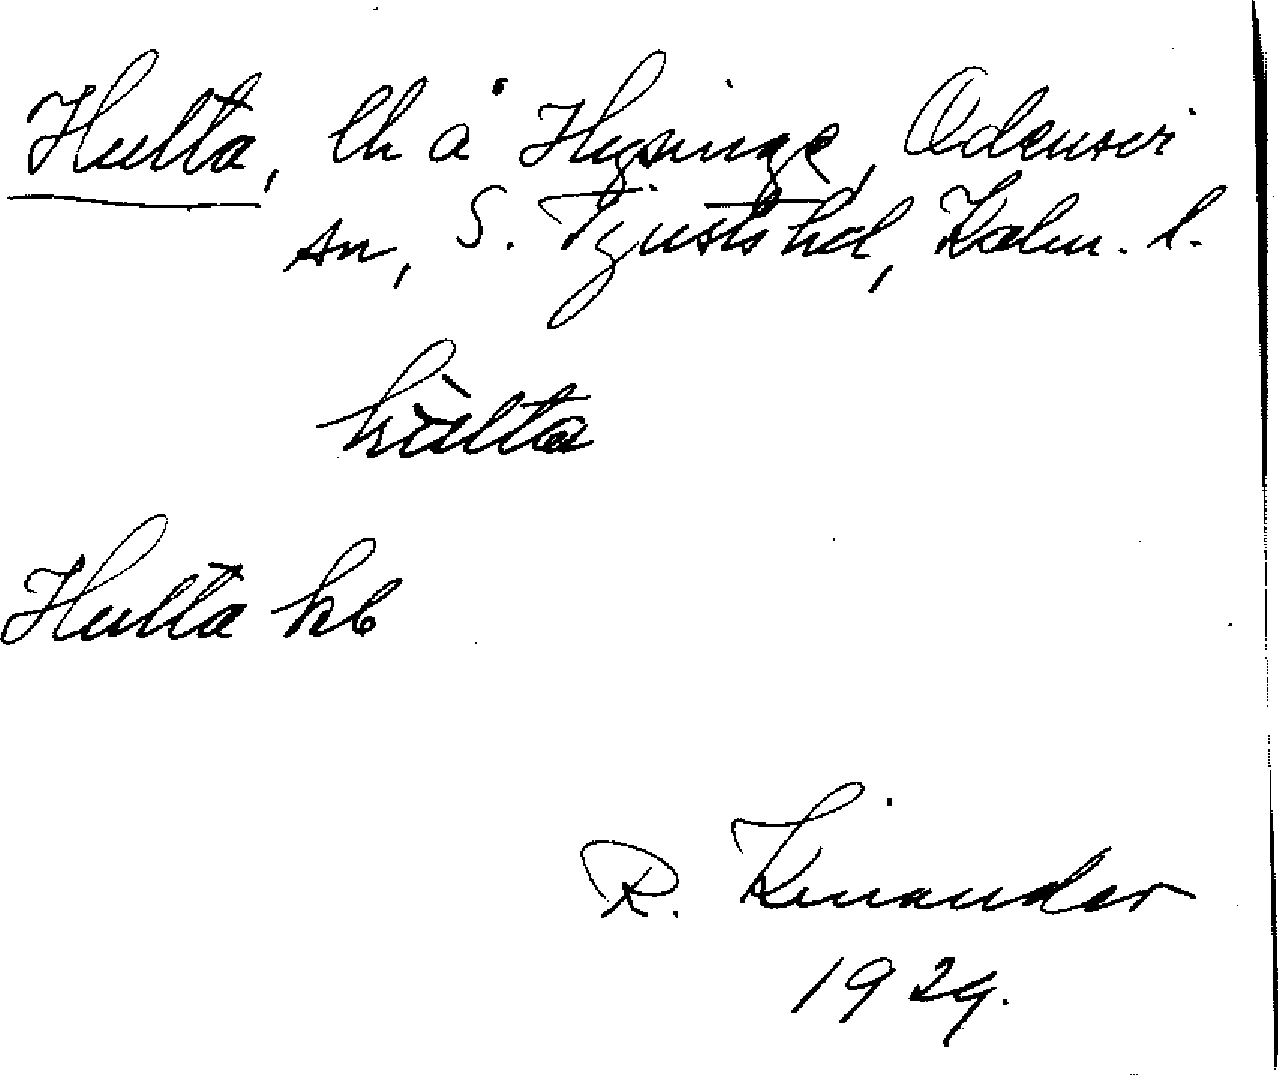 Hulta, lh å Hysinge, Odensvi
sn, S. Tjusts hd, Kalm. l.
hùlta
Hulta kb
R. Kinander
1929.